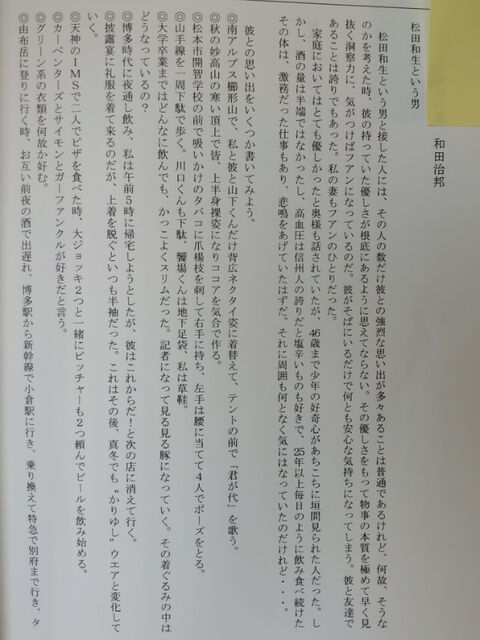 松田和生という男
和田治邦
松田和生という男と接した人には、その人の数だけ彼との強烈な思い出が多々あることは普通であるけれど、何故、そうな
のかを考えた時、彼の持っていた優しさが根底にあるように思えてならない。その優しさをもって物事の本質を極めて早く見
抜く洞察力に、気がつけばファンになっているのだ。彼がそばにいるだけで何とも安心な気持ちになってしまう。彼と友達で
あることは誇りでもあった。私の妻もファンのひとりだった。
家庭においてはとても優しかったと奥様も話されていたが、46歳まで少年の好奇心があちこちに垣間見られた人だった。し
かし、酒の量は半端ではなかったし、高血圧は信州人の誇りだと塩辛いものも好きで、25年以上毎日のように飲み食べ続けた
その体は、激務だった仕事もあり、悲鳴をあげていたはずだ。それに周囲も何となく気にはなっていたのだけれど・・・。
彼との思い出をいくつか書いてみよう。
◎南アルプス櫛形山で、私と彼と山下くんだけ背広ネクタイ姿に着替えて、テントの前で「君が代」を歌う。
◎秋の妙高山の寒い頂上で皆、上半身裸姿になりココアを気合で作る。
◎松本市開智学校の前で吸いかけのタバコに爪楊枝を刺して右手に持ち、左手は腰に当てて4人でポーズをとる。
◎山手線を一周下駄で歩く。川口くんも下駄、饗場くんは地下足袋、私は草鞋。
◎大学卒業まではどんなに飲んでも、かっこよくスリムだった。記者になって見る見る豚になっていく。その着ぐるみの中は
どうなっているの？
◎博多時代に夜通し飲み、私は午前5時に帰宅しようとしたが、彼はこれからだ！と次の店に消えて行く。
◎披露宴に礼服を着て来るのだが、上着を脱ぐといつも半袖だった。これはその後、真冬でも“かりゆし”ウエアと変化して
いく。
◎天神のIMSで二人でピザを食べた時、大ジョッキ2つと一緒にピッチャーも2つ頼んでビールを飲み始める。
◎カーペンターズとサイモンとガーファンクルが好きだと言う。
◎グリーン系の衣類を何故か好む。
◎由布岳に登りに行く時、お互い前夜の酒で出遅れ、博多駅から新幹線で小倉駅に行き、乗り換えて特急で別府まで行き、タ